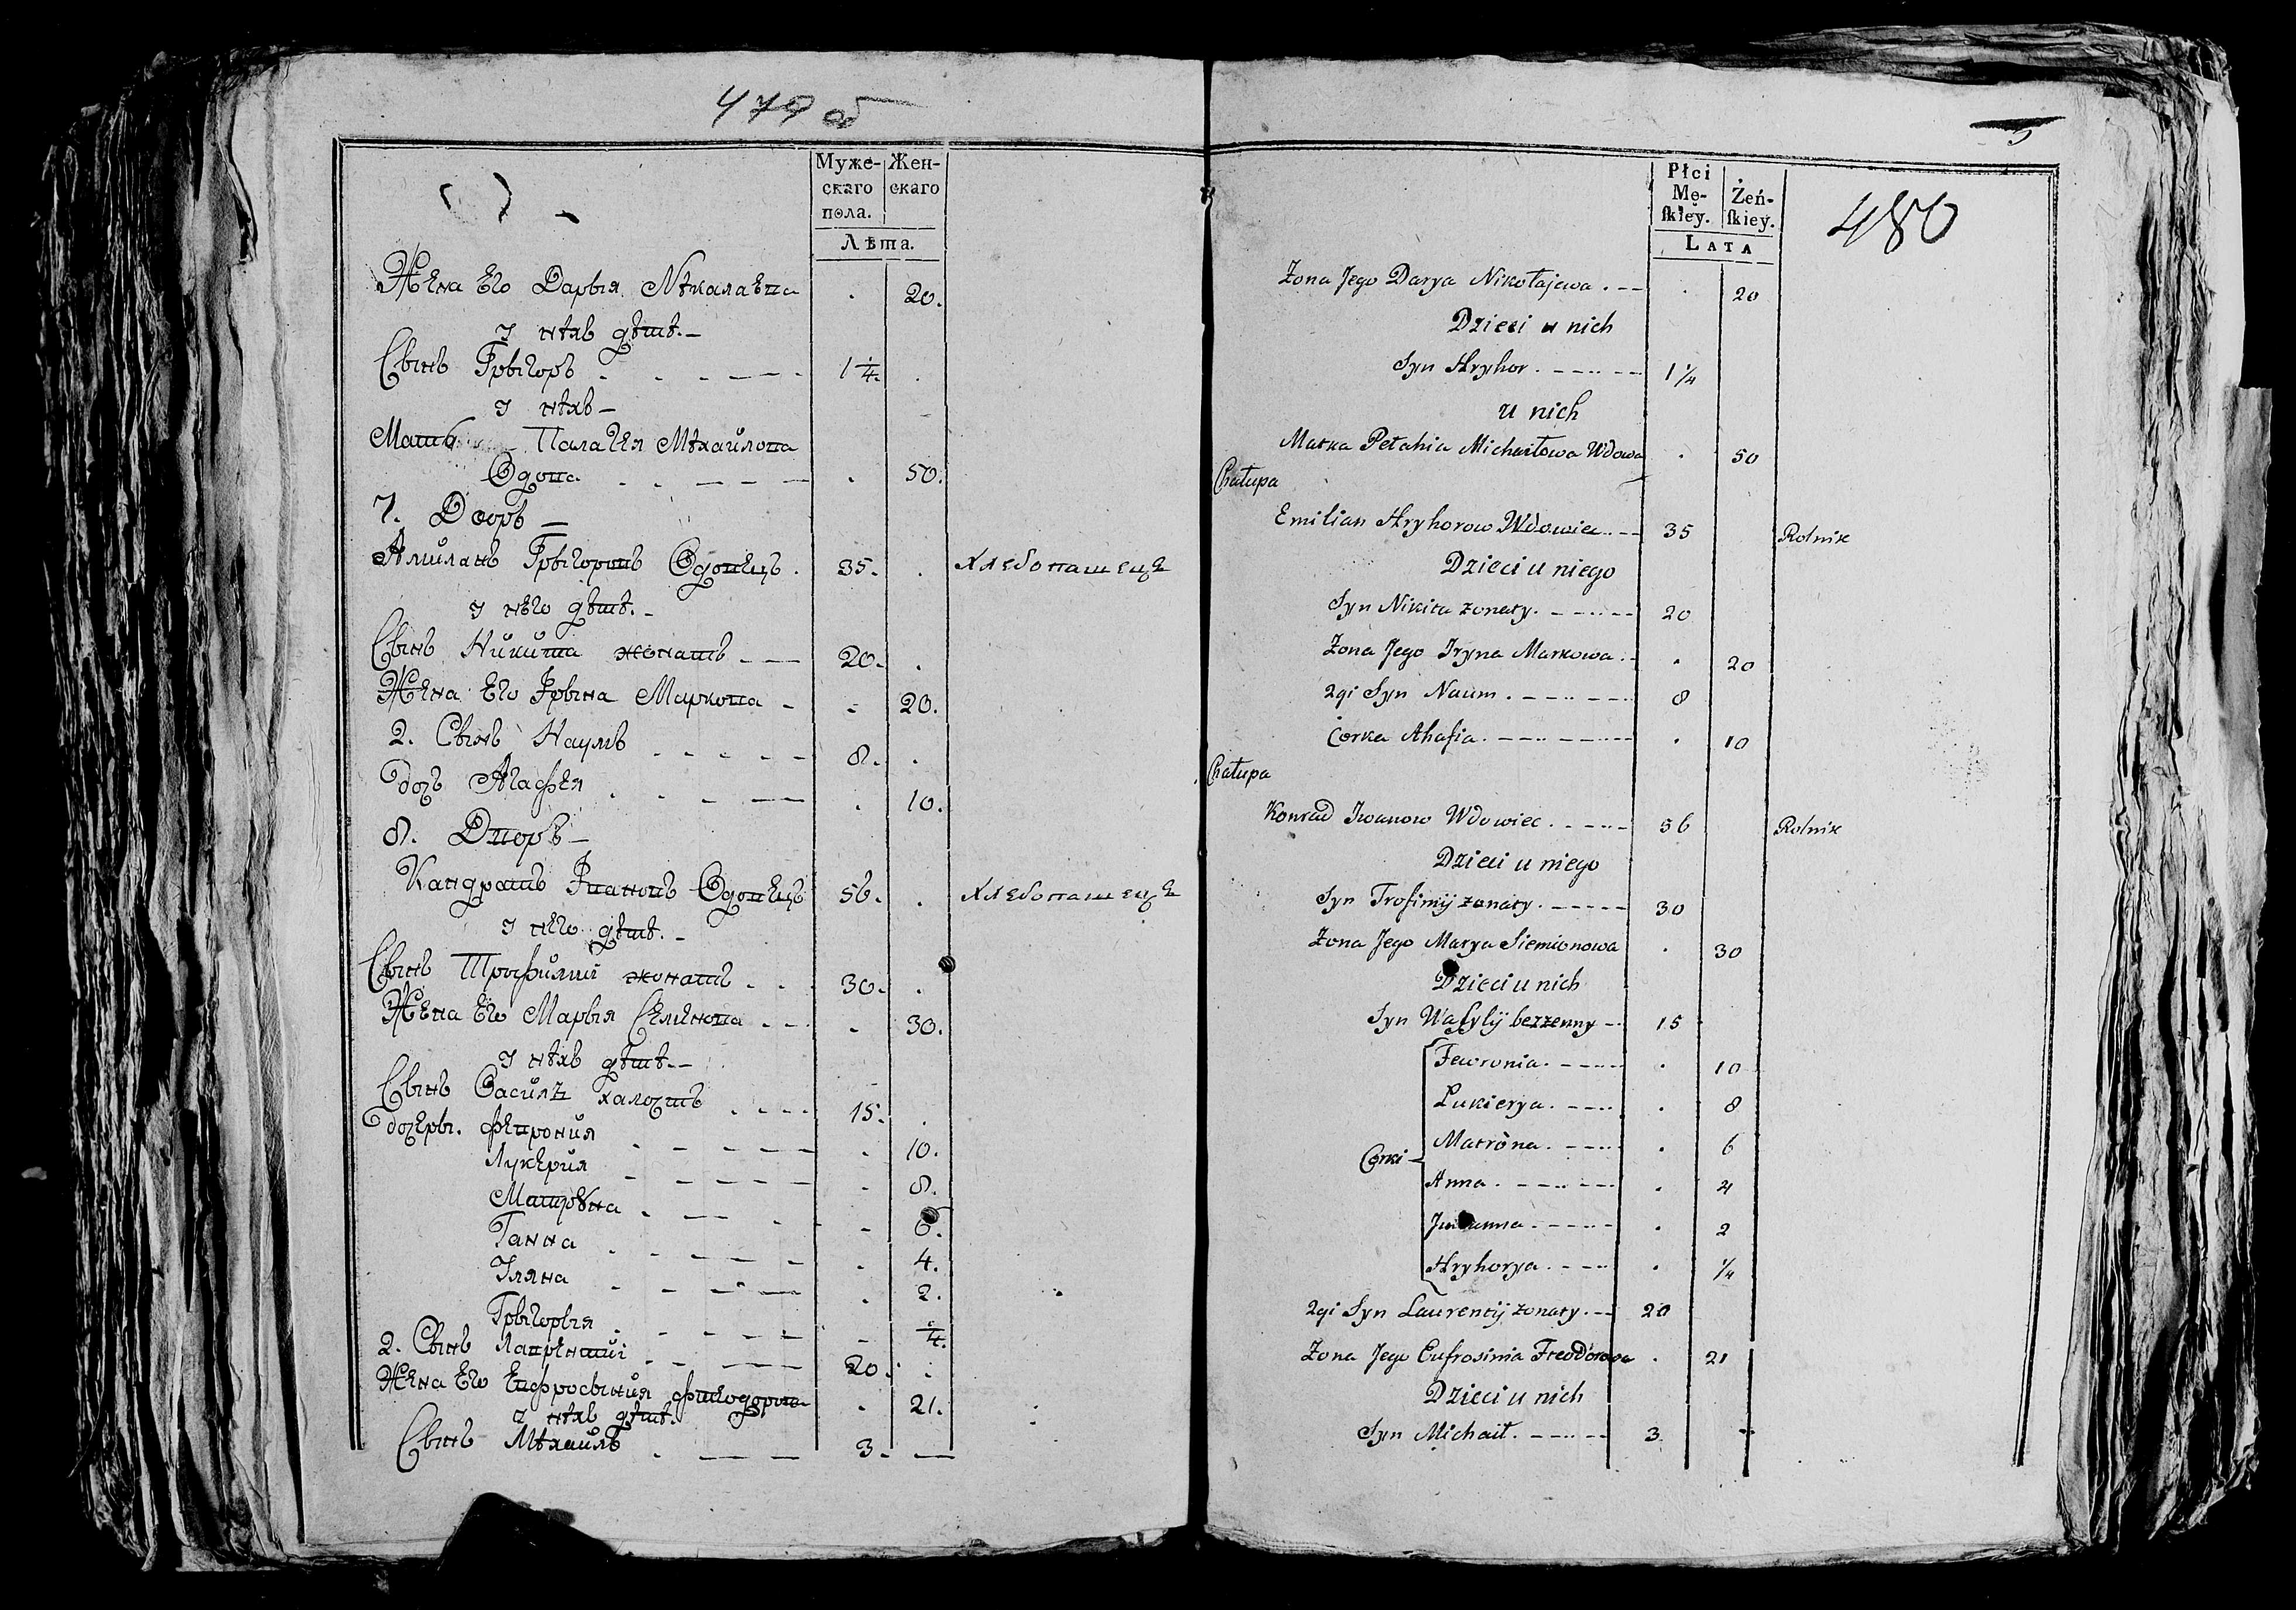 479 об
Муже-
скаго
пола.
Жен-
скаго
Лѣта.
Жена Его Дарыя Нѣкалаева . 20.
У нѣхъ дѣтѣ.–
Сынъ Грыгоръ 1 1/4. .
У нѣхъ–
Мать Палагея Мѣхайлова
Вдова . 50.
7. Дворъ–
Амилянъ Грыгоровъ Вдовецъ. 35. . Хлебопашецъ
У него дѣтѣ.–
Сынъ Никита жонатъ 20. .
Жена Его Ірына Маркова - 20.
2. Сынъ Наумъ 8. .
дочь Агафея . 10.
8. Дворъ–
Кандратъ Івановъ Вдовецъ 56. . Хлебопашецъ
У него дѣтѣ.–
Сынъ Трофимиі жонатъ 30. .
Жена Его Марыя Семенова - 30.
У нѣхъ дѣтѣ.–
Сынъ Василь халостъ 15. .
дочеры. Феврония - 10.
Лукерия - 8.
Матруна - 6.
Ганна . 4.
Уляна . 2.
Грыгорыя - 1/4.
2. Сынъ Лаврентиі 20. .
Жена Его Евфросыния Фтеодорова . 21.
У нѣхъ дѣтѣ.
Сынъ Мѣхайлъ 3. —
Płci
Mę-
skiey.
Żeń-
skiey.
LATA
480
Żona Jego Darya Nikołajewa . 20
Dzieci u nich
Syn Hryhor 1 1/4
u nich
Matka Pełahia Michaiłowa Wdowa . 50
Chałupa
Emilian Hryhorow Wdowiec 35 Rolnik
Dzieci u niego
Syn Nikita żonaty 20
Żona Jego Iryna Markowa . 20
2gi Syn Naum 8
Córka Ahafia . 10
Chałupa
Konrad Iwanow Wdowiec 56 Rolnik
Dzieci u niego
Syn Trofimij żonaty 30
Żona Jego Marya Siemionowa . 30
Dzieci u nich
Syn Wasylij bezżenny 15
Córki
Fewronia . 10
Łukierya . 8
Matrona . 6
Anna . 4
. 2
Hryhorya . 1/4
2gi Syn Laurentij żonaty 20
Żona Jego Eufrosinia Fteodorowa . 21
Dzieci u nich
Syn Michaił 3